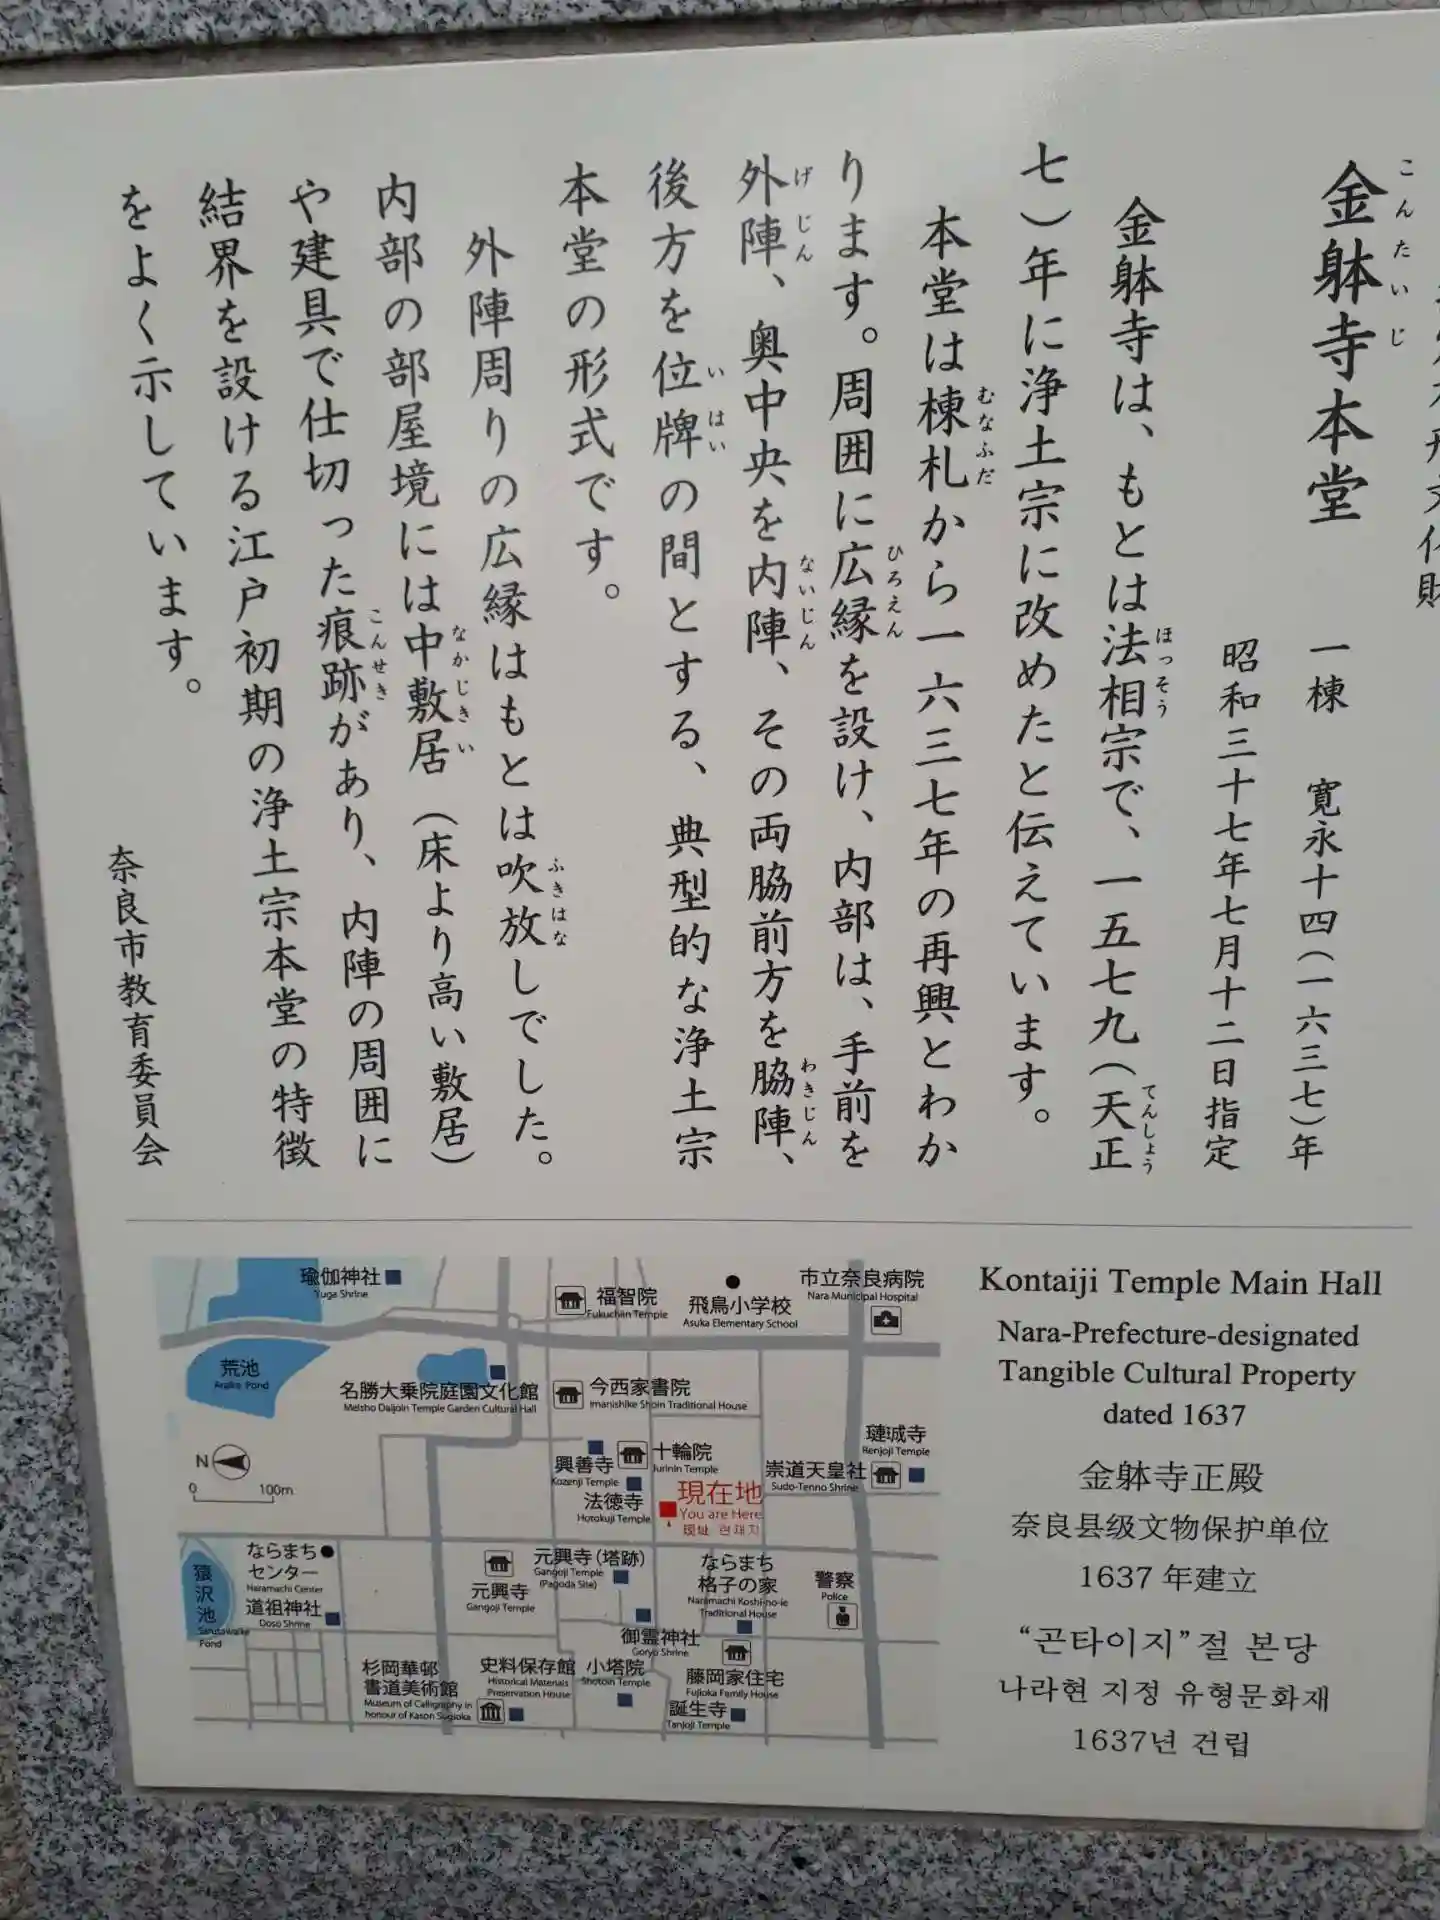 金躰寺本堂
こんたいじ
一棟 寛永十四(一六三七)年
昭和三十七年七月十二日指定
金躰寺は、もとは法相宗で、一五七九(天正
ほっそう
てんしょう
七)年に浄土宗に改めたと伝えています。
本堂は棟札から一六三七年の再興とわか
むなふだ
ります。周囲に広縁を設け、内部は、手前を
ひろえん
外陣、奥中央を内陣、その両脇前方を脇陣、
げじん
ないじん
わきじん
後方を位牌の間とする、典型的な浄土宗
いはい
本堂の形式です。
外陣周りの広縁はもとは吹放しでした。
ふきはな
内部の部屋境には中敷居(床より高い敷居)
なかじきい
や建具で仕切った痕跡があり、内陣の周囲に
こんせき
結界を設ける江戸初期の浄土宗本堂の特徴
をよく示しています。
奈良市教育委員会
Kontaiji Temple Main Hall
Nara-Prefecture-designated
Tangible Cultural Property
dated 1637
金躰寺正殿
奈良县级文物保护单位
1637 年建立
“곤타이지”절 본당
나라현 지정 유형문화재
1637년 건립
瑜伽神社
Yuga Shrine
福智院
Fukuchiin Temple
飛鳥小学校
Asuka Elementary School
市立奈良病院
Nara Municipal Hospital
荒池
Araike Pond
名勝大乗院庭園文化館
Meisho Daijoin Temple Garden Cultural Hall
今西家書院
Imanishike Shoin Traditional House
璉珹寺
Renjoji Temple
N
0 100m
興善寺
Kozenji Temple
十輪院
Jurinin Temple
崇道天皇社
Sudo-Tenno Shrine
法徳寺
Hotokuji Temple
現在地
You are Here
现址 현재지
ならまち
センター
Naramachi Center
猿沢池
Sarusawaike
Pond
道祖神社
Doso Shrine
元興寺
Gangoji Temple
元興寺(塔跡)
Gangoji Temple
(Pagoda Site)
ならまち
格子の家
Naramachi Koshi-no-ie
Traditional House
警察
Police
御霊神社
Goryo Shrine
杉岡華邨
書道美術館
Museum of Calligraphy in
honour of Kason Sugioka
史料保存館
Historical Materials
Preservation House
小塔院
Shotoin Temple
藤岡家住宅
Fujioka Family House
誕生寺
Tanjoji Temple